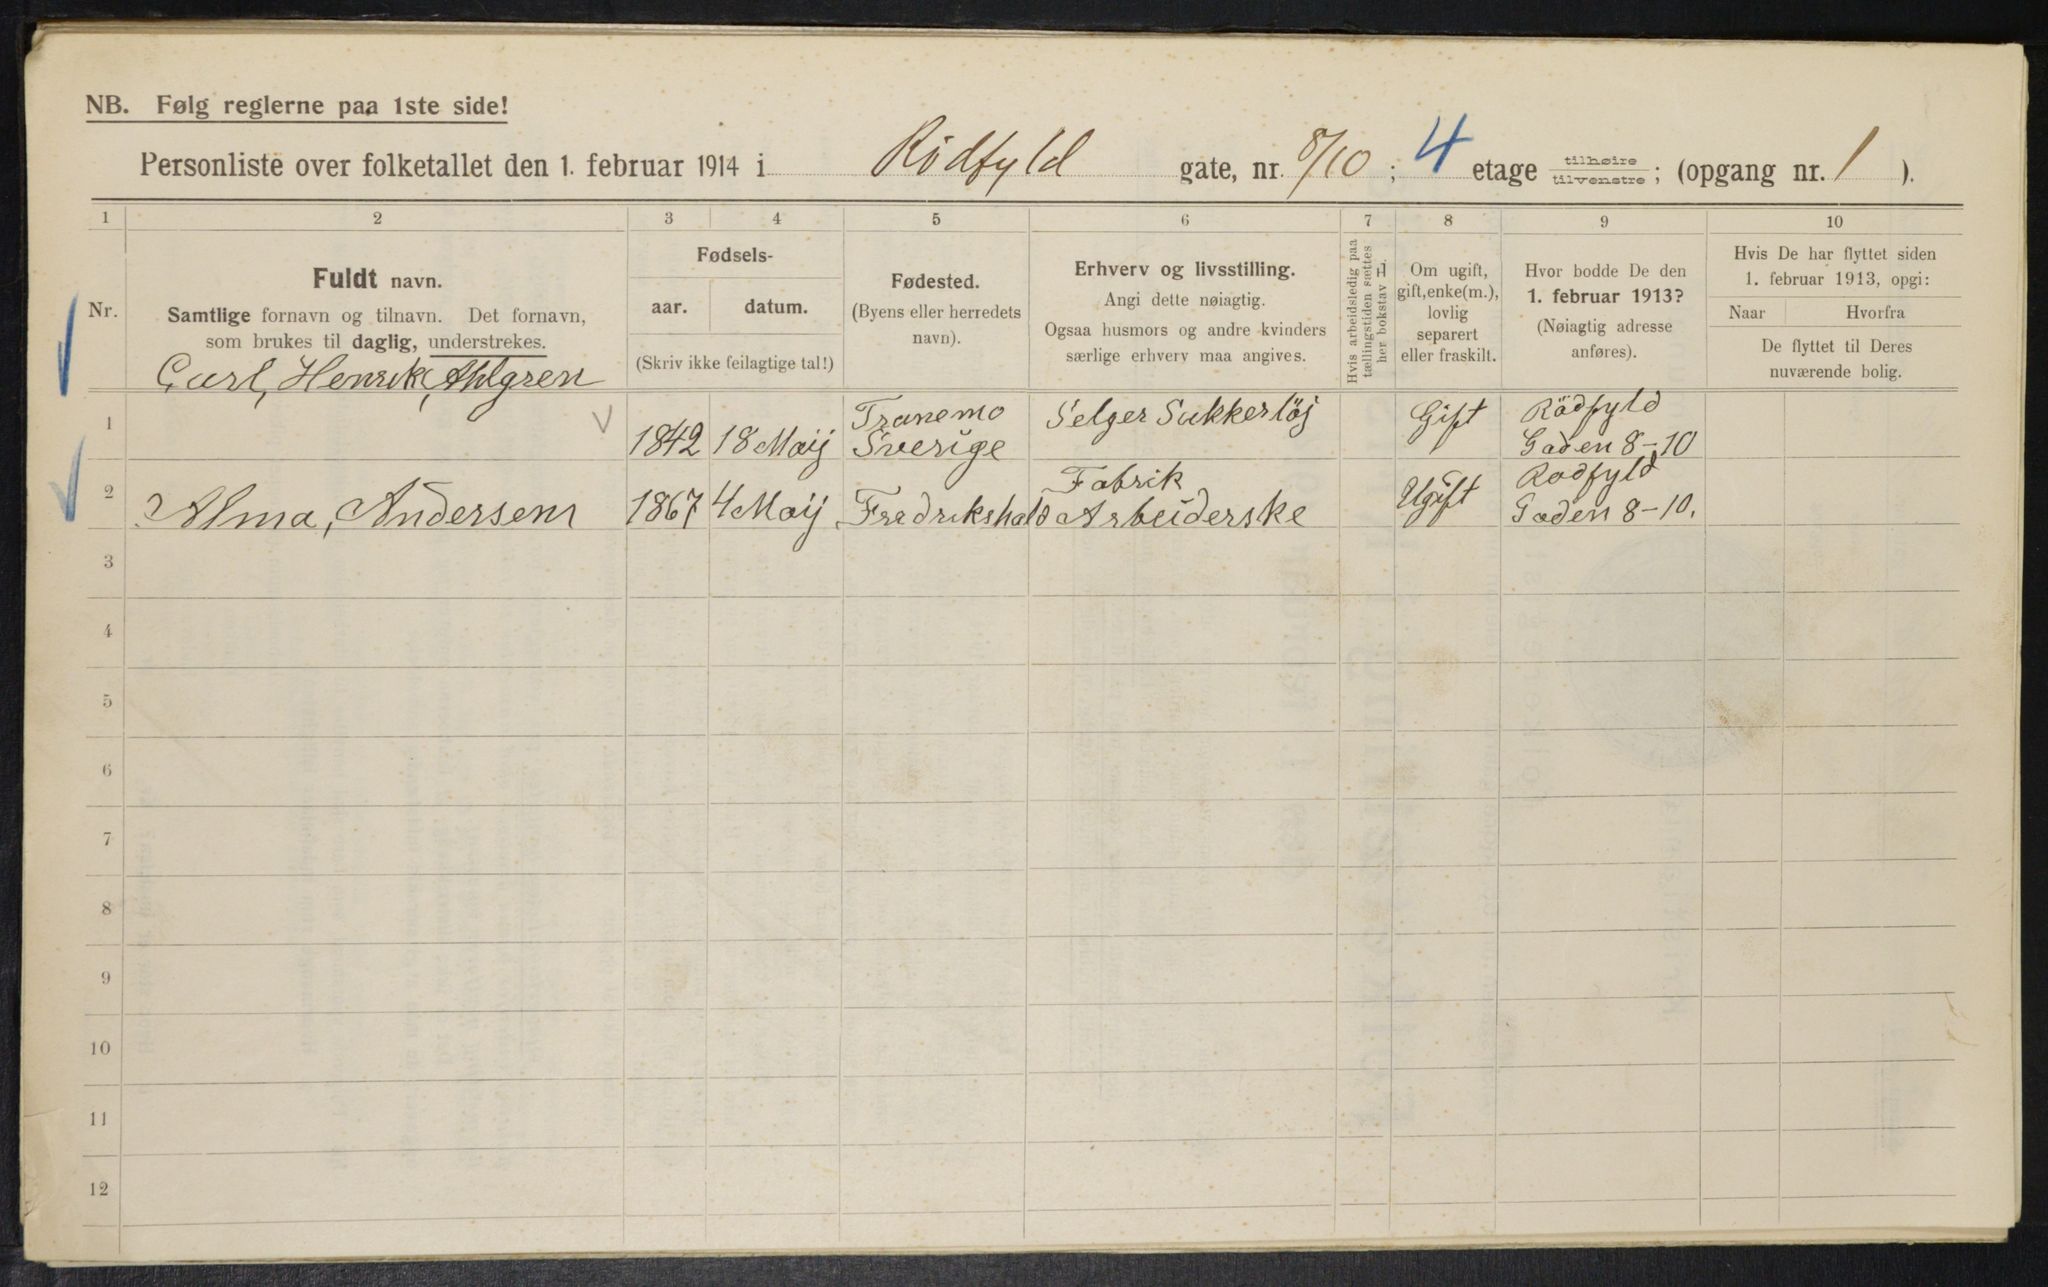 NB. Følg reglerne paa 1ste side!
Personliste over folketallet den 1. februar 1914 i Rödfyld gate, nr. 8/10; 4 etage tilhøire tilvenstre; (opgang nr. 1 ).
1 2 3 4 5 6 7 8 9 10
Nr.
Fuldt navn.
Samtlige fornavn og tilnavn. Det fornavn,
som brukes til daglig, understrekes.
Fødsels-
aar. datum.
(Skriv ikke feilagtige tal!)
Fødested.
(Byens eller herredets
navn).
Erhverv og livsstilling.
Angi dette nøiagtig.
Ogsaa husmors og andre kvinders
særlige erhverv maa angives.
Hvis arbeidsledig paa
tællingstiden sættes
her bokstav L.
Om ugift,
gift, enke(m.),
lovlig
separert
eller fraskilt.
Hvor bodde De den
1. februar 1913?
(Nøiagtig adresse
anføres).
Hvis De har flyttet siden
1. februar 1913, opgi:
Naar Hvorfra
De flyttet til Deres
nuværende bolig.
Carl, Henrik, Ahlgren
1 1842 18 Maij Tranemo
Sverige
Selger Sukkertöj
Gift
Rödfyld
Gaden 8-10
2 Alma, Andersen 1867 4 Maij Fredrikshald
Fabrik
Arbeiderske
Ugift
Rodfyld
Gaden 8-10.
3
4
5
6
7
8
9
10
11
12